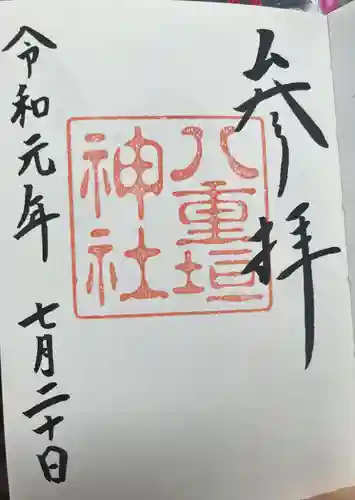 参拝
八重垣
神社
令和元年 七月二十日